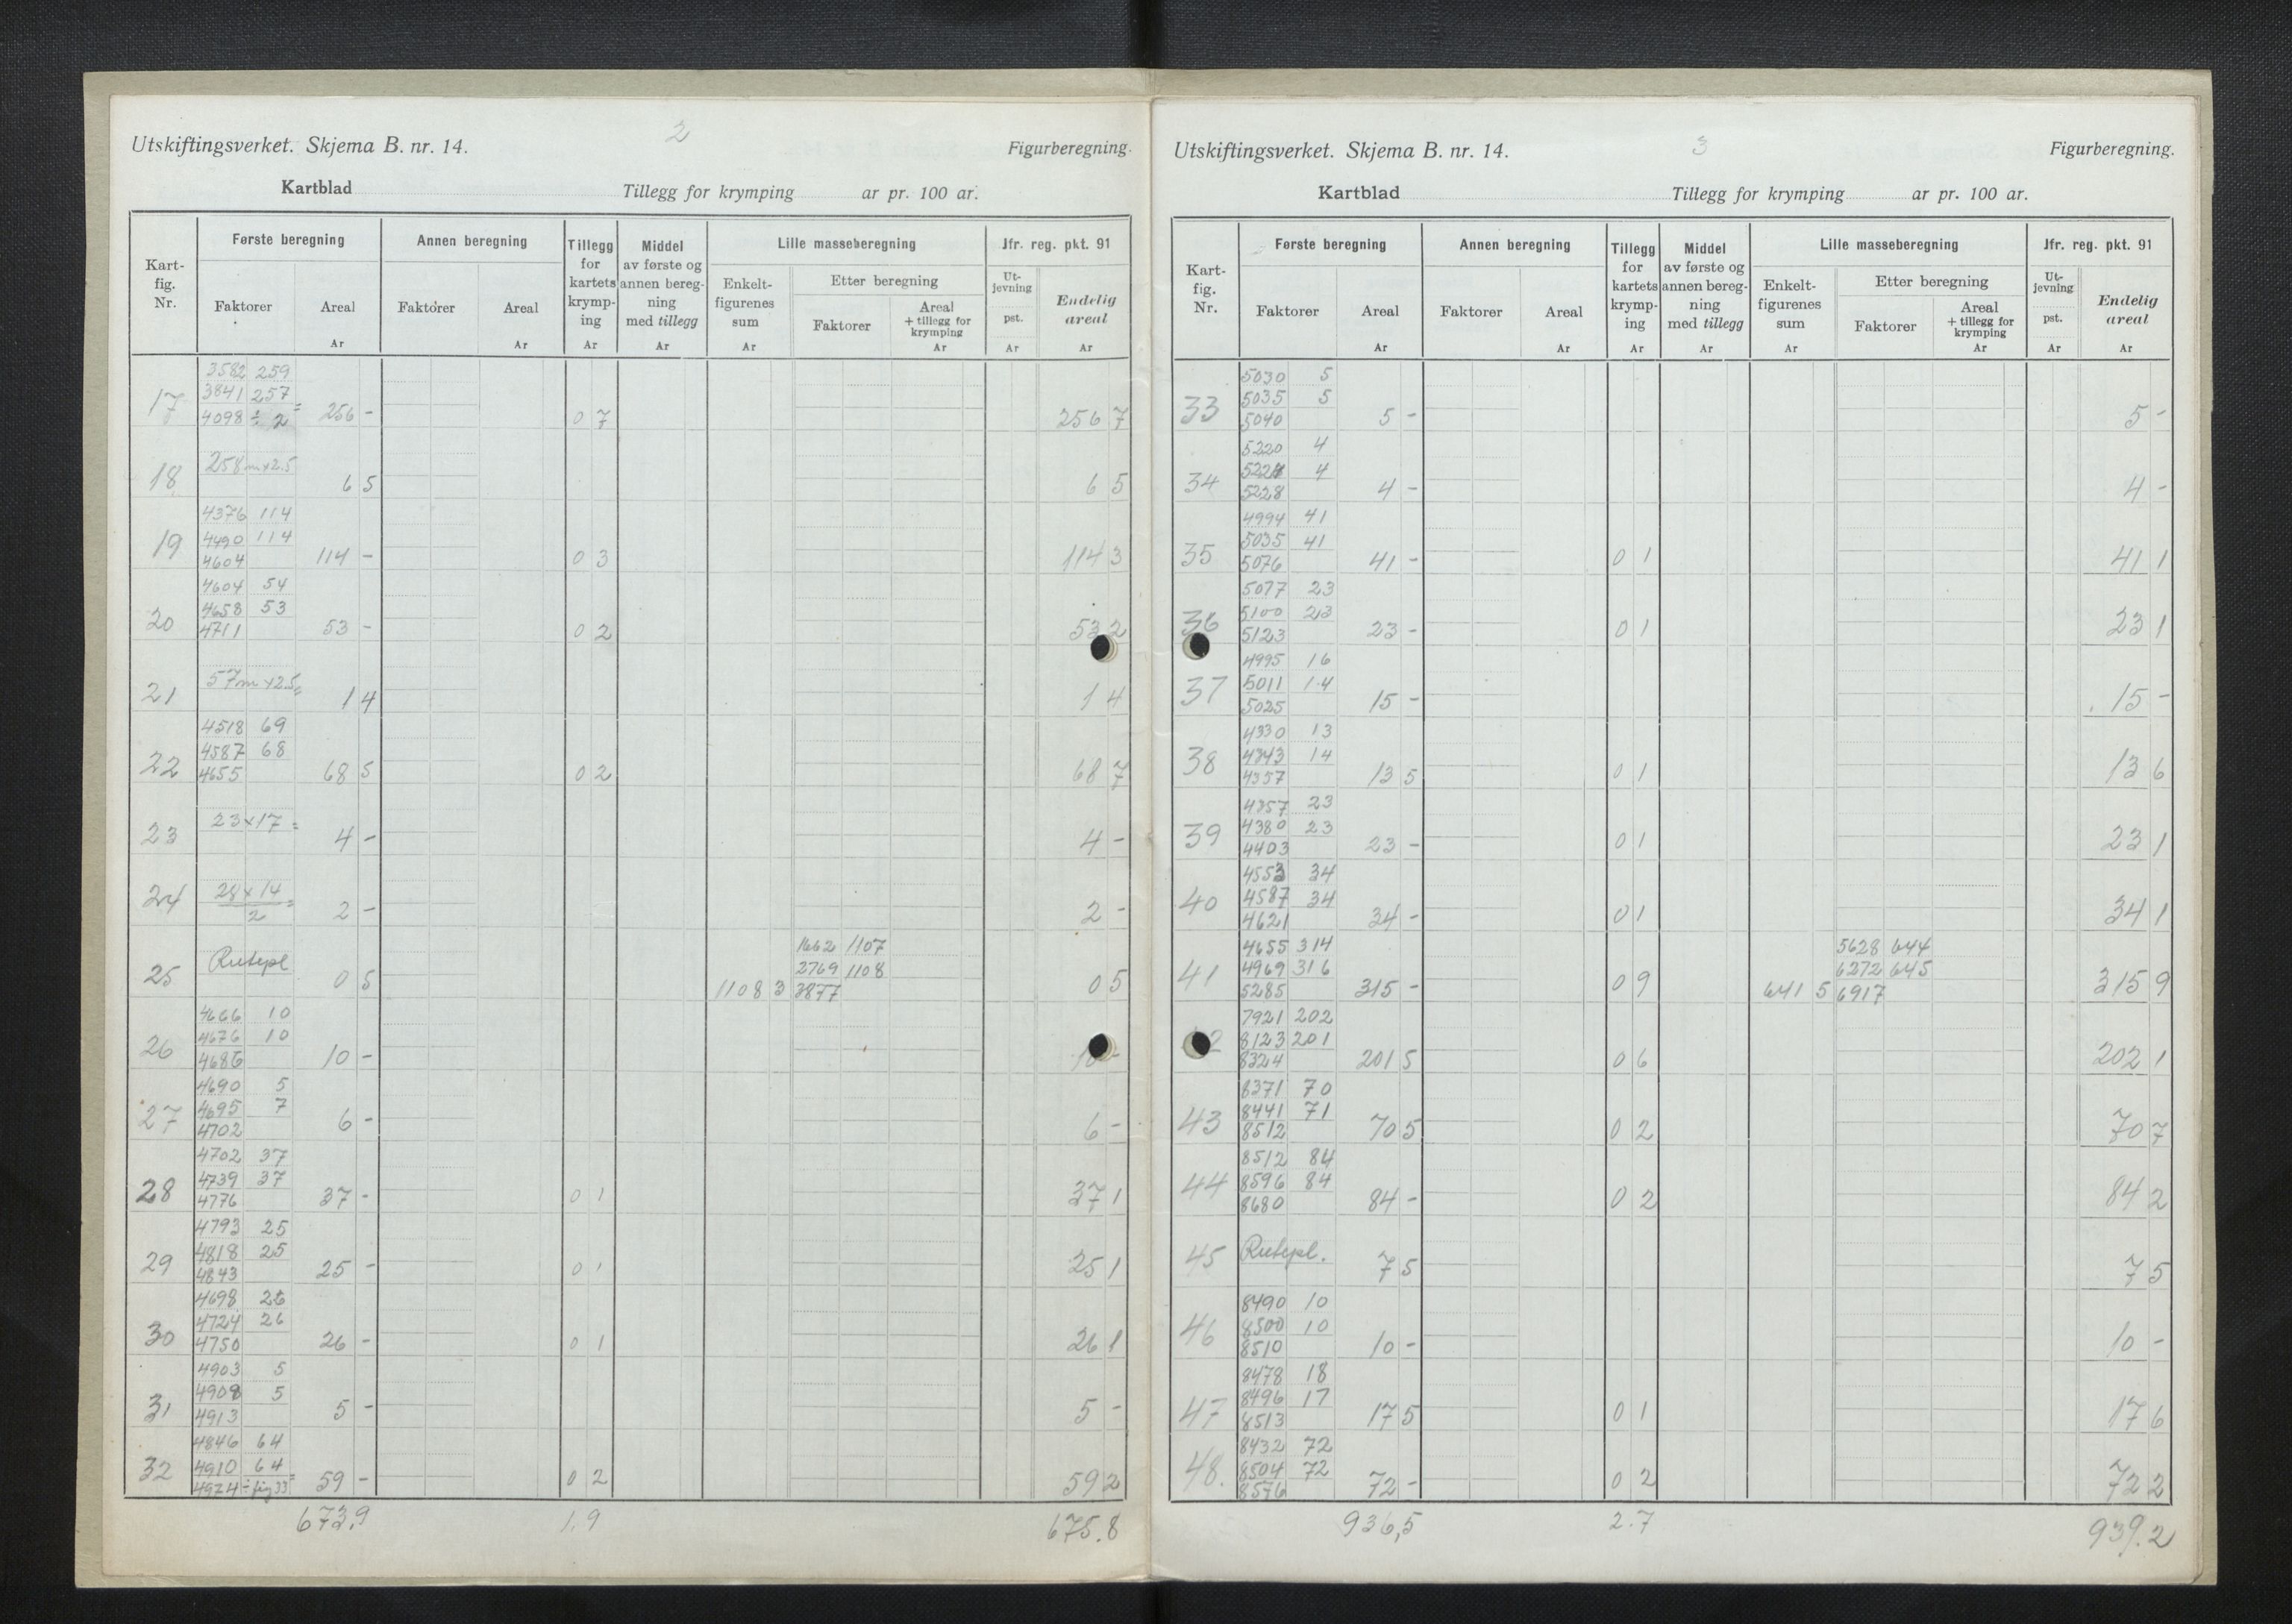 2
Utskiftingsverket. Skjema B. nr. 14. Figurberegning.
Kartblad Tillegg for krymping ar pr. 100 ar.
Kart-fig. Nr. Første beregning Annen beregning Tillegg for kartets krymping Middel av første og annen beregning med tillegg Lille masseberegning Jfr. reg. pkt. 91
Faktorer Areal Faktorer Areal Enkelt-figurenes sum Etter beregning Ut-jevning pst. Endelig areal
Faktorer Areal + tillegg for krymping
Ar Ar Ar Ar Ar Ar Ar Ar
3582 259
3841 257
17 4098 ÷ 2 = 256 - 0 7 256 7
258m×2.5
18 6 5 6 5
4376 114
4490 114
19 4604 114 - 0 3 114 3
4604 54
4658 53
20 4711 53 - 0 2 53 2
57m×2.5=
21 1 4 1 4
4518 69
4587 68
22 4655 68 5 0 2 68 7
23×17 =
23 4 - 4 -
24 28×14 / 2 = 2 - 2 -
1662 1107
Rutepl 2769 1108
25 0 5 1108 3 3877 0 5
4666 10
4676 10
26 4686 10 - 10 -
4690 5
4695 7
27 4702 6 - 6 -
4702 37
4739 37
28 4776 37 - 0 1 37 1
4793 25
4818 25
29 4843 25 - 0 1 25 1
4698 26
4724 26
30 4750 26 - 0 1 26 1
4903 5
4908 5
31 4913 5 - 5 -
4846 64
4910 64
32 4974 ÷ fig 33 = 59 - 0 2 59 2
673,9 1,9 675.8
3
Utskiftingsverket. Skjema B. nr. 14. Figurberegning.
Kartblad Tillegg for krymping ar pr. 100 ar.
Kart-fig. Nr. Første beregning Annen beregning Tillegg for kartets krymping Middel av første og annen beregning med tillegg Lille masseberegning Jfr. reg. pkt. 91
Faktorer Areal Faktorer Areal Enkelt-figurenes sum Etter beregning Ut-jevning pst. Endelig areal
Faktorer Areal + tillegg for krymping
Ar Ar Ar Ar Ar Ar Ar Ar
5030 5
5035 5
33 5040 5 - 5 -
5220 4
5224 4
34 5228 4 - 4 -
4994 41
5035 41
35 5076 41 - 0 1 41 1
5077 23
5100 23
36 5123 23 - 0 1 23 1
4995 16
5011 14
37 5025 15 - 15 -
4330 13
4343 14
38 4357 13 5 0 1 13 6
4357 23
4380 23
39 4403 23 - 0 1 23 1
4553 34
4587 34
40 4621 34 - 0 1 34 1
4655 314 5628 644
4969 316 6272 645
41 5285 315 - 0 9 641 5 6917 315 9
7921 202
8123 201
2 8324 201 5 0 6 202 1
8371 70
8441 71
43 8512 70 5 0 2 70 7
8512 84
8596 84
44 8680 84 - 0 2 84 2
Rutepl.
45 7 5 7 5
8490 10
8500 10
46 8510 10 - 10 -
8478 18
8496 17
47 8513 17 5 0 1 17 6
8432 72
8504 72
48. 8576 72 - 0 2 72 2
936,5 2.7 939.2